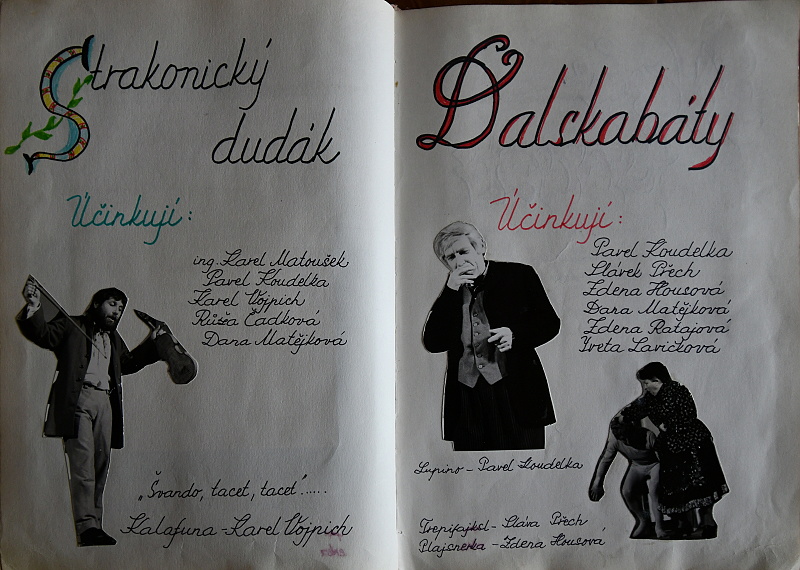 Strakonický
dudák
Účinkují:
ing. Karel Matoušek
Pavel Koudelka
Karel Vojpich
Růža Čadková
Dana Matějková
„Švando, tacet, tacet“.....
Kalafuna - Karel Vojpich
Dalskabáty
Účinkují:
Pavel Koudelka
Slávek Přech
Zdena Housová
Dana Matějková
Zdena Ratajová
Iveta Lavičková
Lupino - Pavel Koudelka
Trepifajksl - Sláva Přech
Plajznerka - Zdena Housová